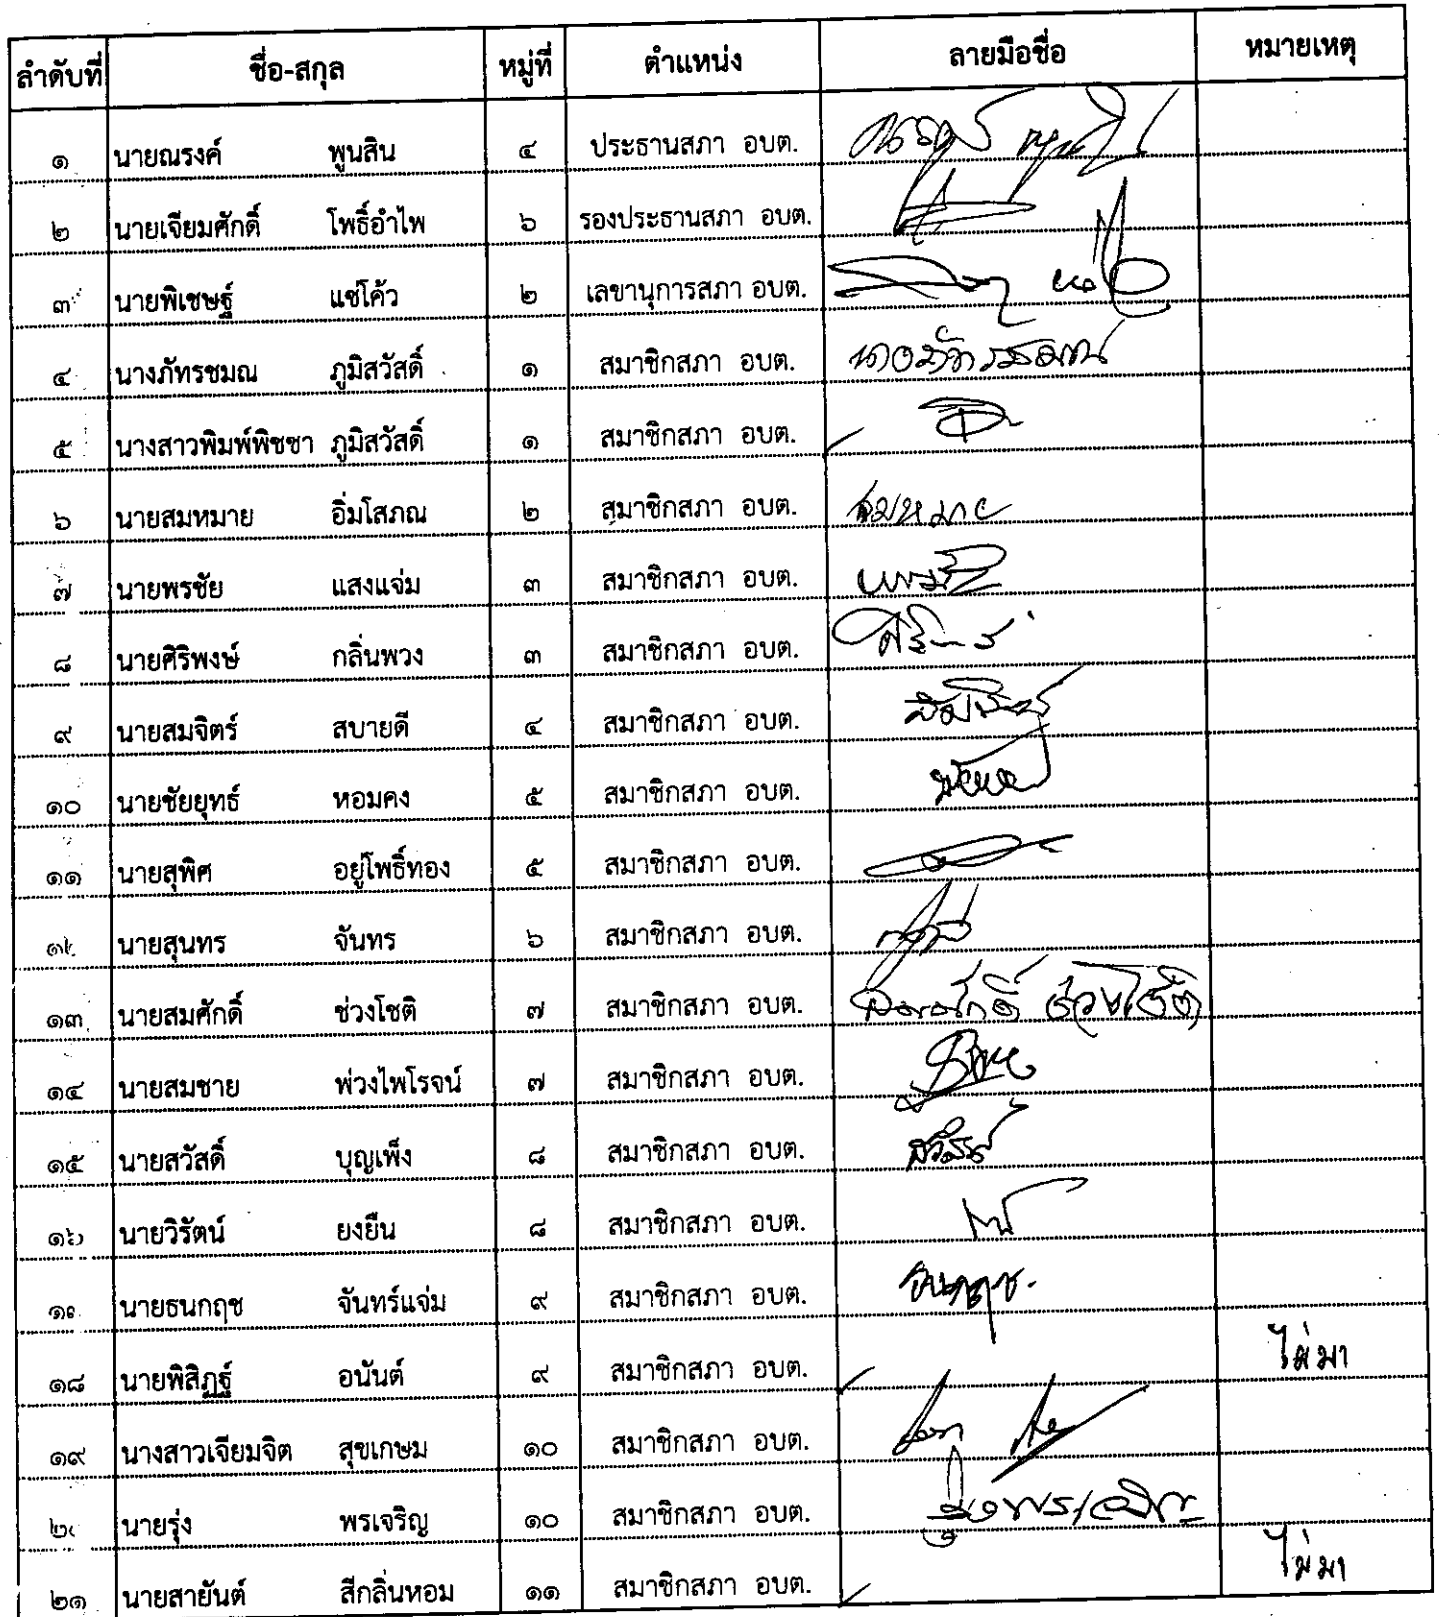 ลำดับที่ ชื่อ-สกุล หมู่ที่ ตำแหน่ง ลายมือชื่อ หมายเหตุ
๑ นายณรงค์ พูนสิน ๔ ประธานสภา อบต.
๒ นายเจียมศักดิ์ โพธิ์อำไพ ๖ รองประธานสภา อบต.
๓ นายพิเชษฐ์ แซ่โค้ว ๒ เลขานุการสภา อบต.
๔ นางภัทรชมณ ภูมิสวัสดิ์ ๑ สมาชิกสภา อบต.
๕ นางสาวพิมพ์พิชชา ภูมิสวัสดิ์ ๑ สมาชิกสภา อบต.
๖ นายสมหมาย อิ่มโสภณ ๒ สมาชิกสภา อบต. สมหมาย
๗ นายพรชัย แสงแจ่ม ๓ สมาชิกสภา อบต. พรชัย
๘ นายศิริพงษ์ กลิ่นพวง ๓ สมาชิกสภา อบต.
๙ นายสมจิตร์ สบายดี ๔ สมาชิกสภา อบต.
๑๐ นายชัยยุทธ์ หอมคง ๕ สมาชิกสภา อบต.
๑๑ นายสุพิศ อยู่โพธิ์ทอง ๕ สมาชิกสภา อบต.
๑๒ นายสุนทร จันทร ๖ สมาชิกสภา อบต.
๑๓ นายสมศักดิ์ ช่วงโชติ ๗ สมาชิกสภา อบต. สมศักดิ์ ช่วงโชติ
๑๔ นายสมชาย พ่วงไพโรจน์ ๗ สมาชิกสภา อบต.
๑๕ นายสวัสดิ์ บุญเพ็ง ๘ สมาชิกสภา อบต.
๑๖ นายวิรัตน์ ยงยืน ๘ สมาชิกสภา อบต.
๑๗ นายธนกฤช จันทร์แจ่ม ๙ สมาชิกสภา อบต. ธนกฤช
๑๘ นายพิสิฏฐ์ อนันต์ ๙ สมาชิกสภา อบต. ไม่มา
๑๙ นางสาวเจียมจิต สุขเกษม ๑๐ สมาชิกสภา อบต.
๒๐ นายรุ่ง พรเจริญ ๑๐ สมาชิกสภา อบต. รุ่ง พรเจริญ
๒๑ นายสายันต์ สีกลิ่นหอม ๑๑ สมาชิกสภา อบต. ไม่มา